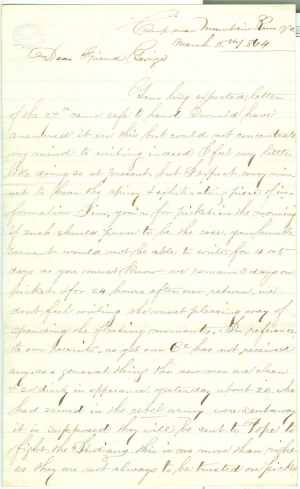 Camp near Mountain Run Va
March 5th 1864
Dear Friend George
Your long expected letter
of the 27th came safe to hand I would have
answered it ere this but could not concentrate
my mind to writing indeed I felt very little
like doing so at present, but I expect every min
ute to hear the spicy & exhilarating piece of in-
formation Jim, you're for picket in the morning
if such should prove to be the case your humble
servant would not be able to write for 4 or 5
days as you must know we remain 3 days on
picket & for 24 hours after our return, we
dont feel writing the most pleasing way of
spending the fleeting moments. In reference
to our recruits, as yet our Co has not received
any, as a general thing the new men are clean
& soldiery in appearance, yesterday about 20 who
had served in the rebel army were sent away
it is supposed they will be sent to Pope to
fight the Indians, this is no more than right
as they are not always to be trusted on picket